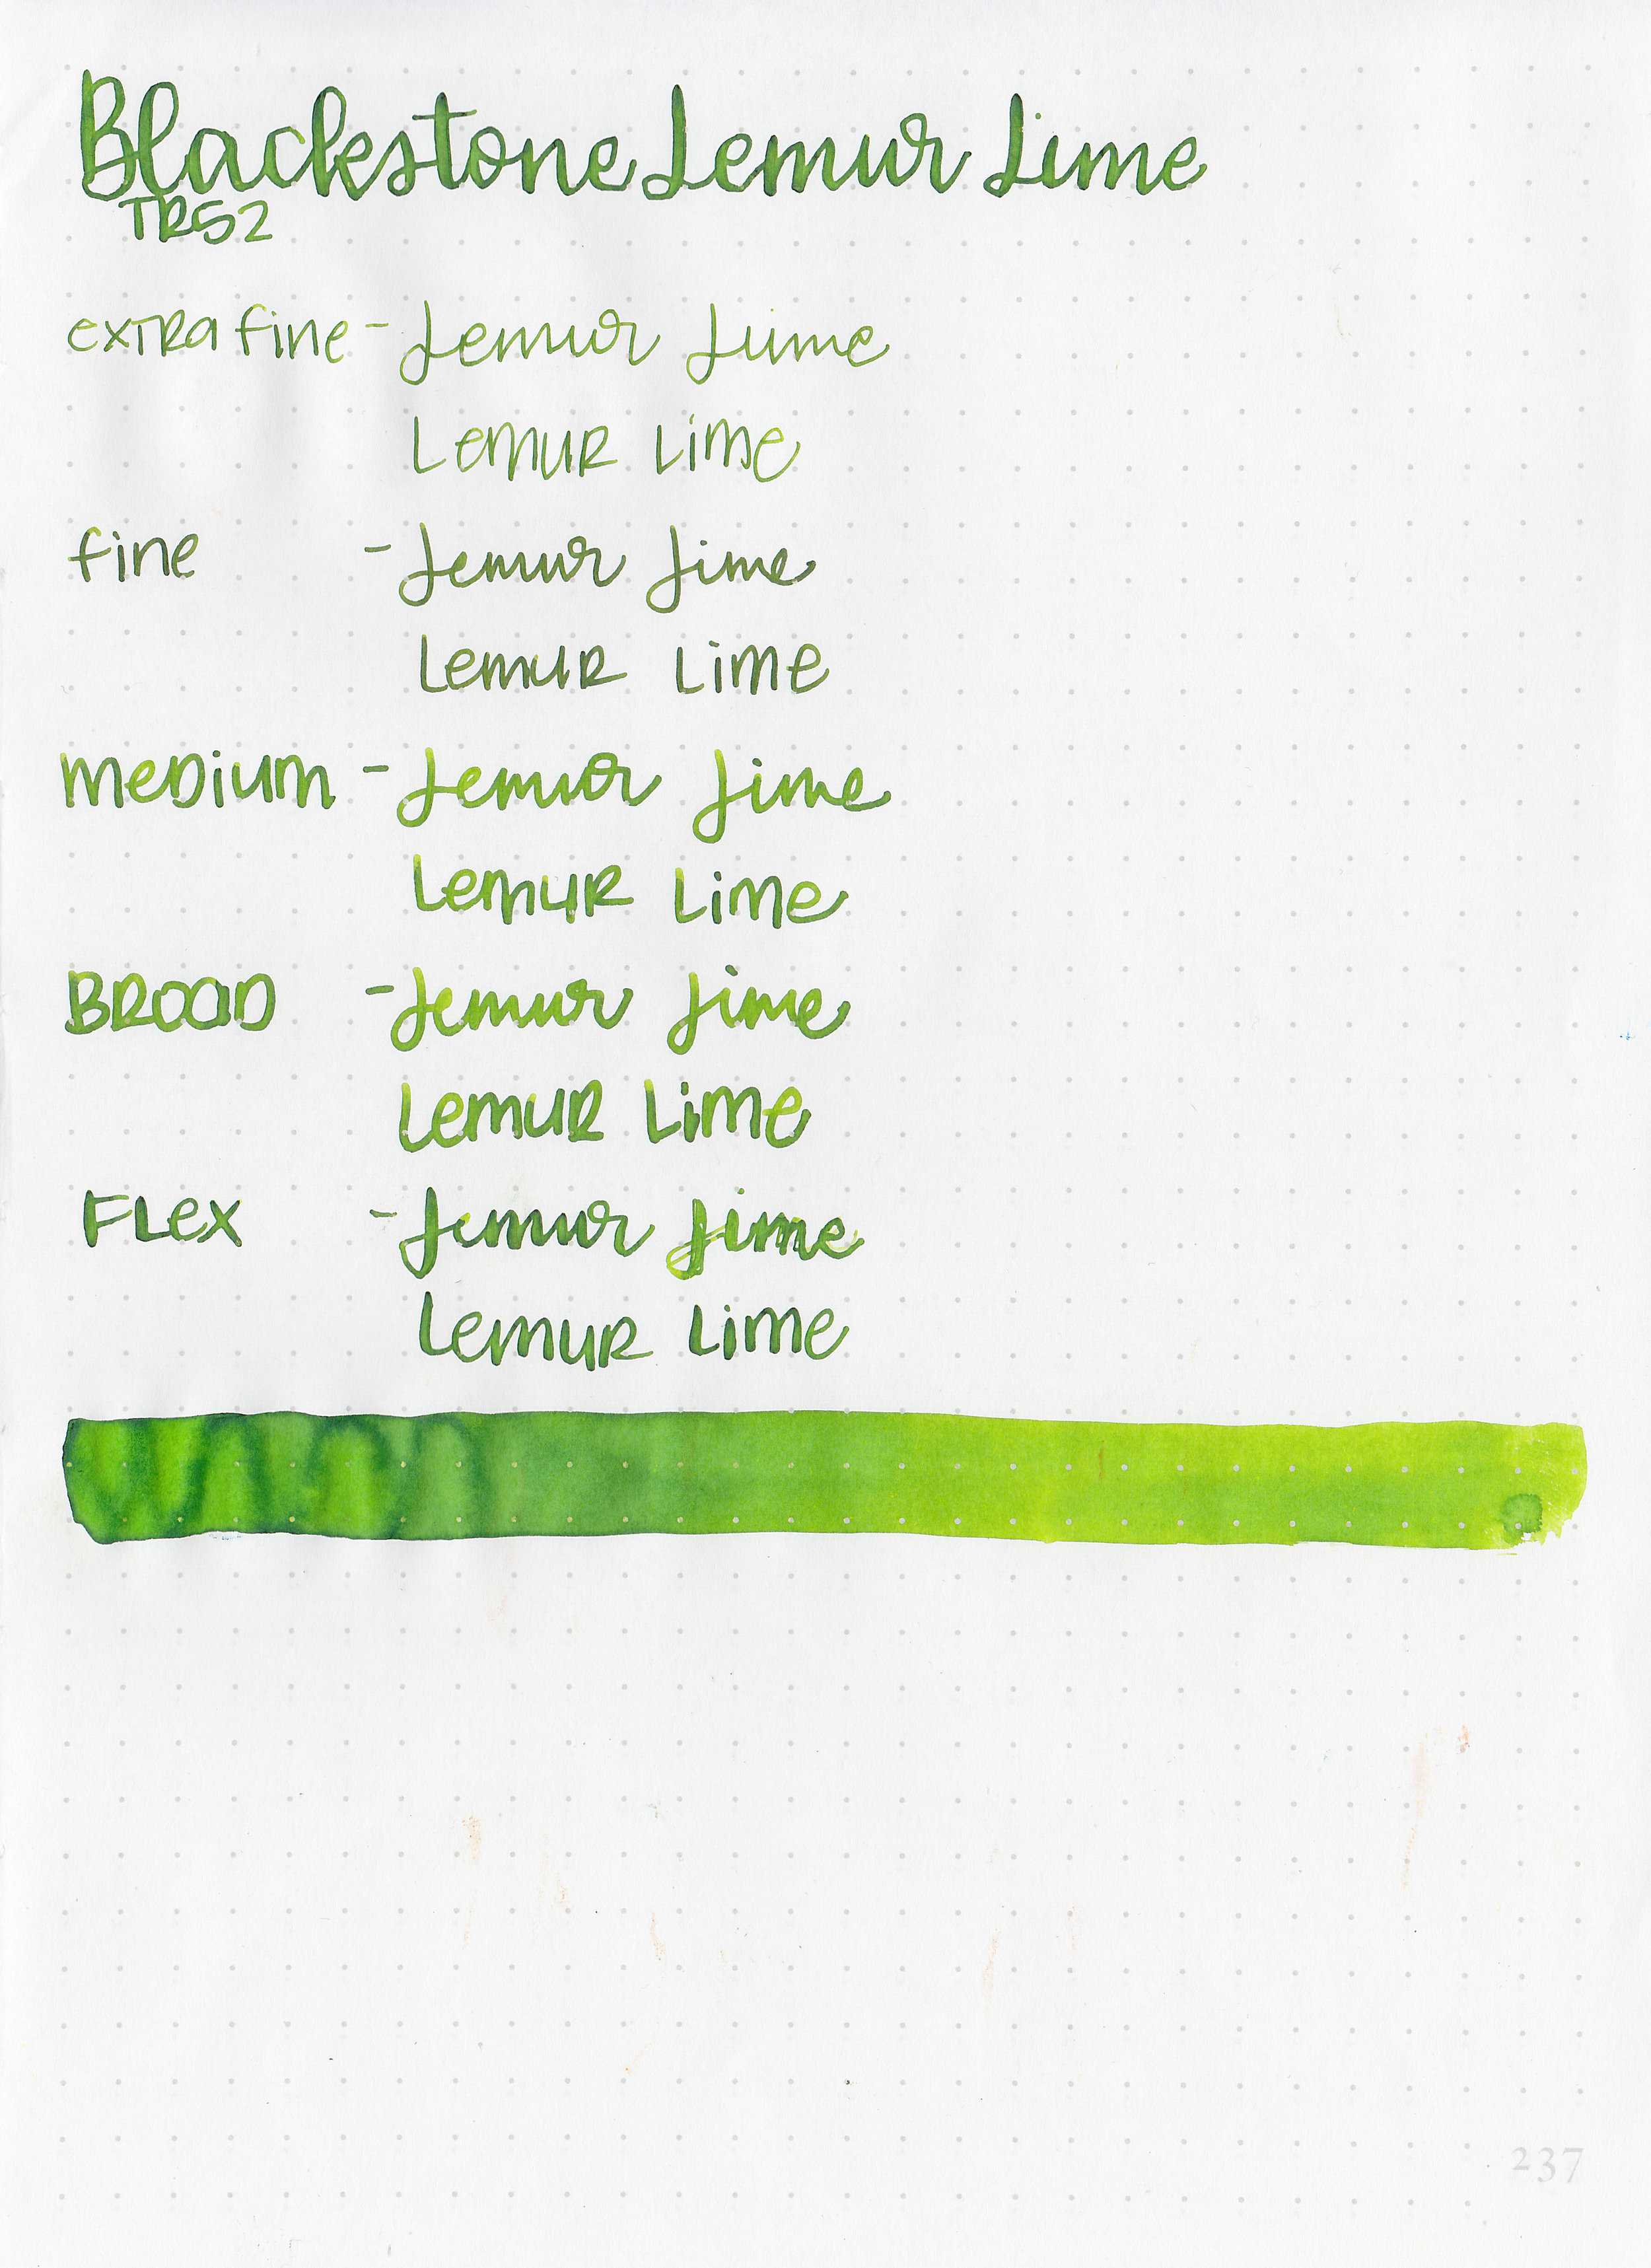 Blackstone Lemur Lime
TR52
extra fine - Lemur Lime
Lemur Lime
fine - Lemur Lime
Lemur Lime
medium - Lemur Lime
Lemur Lime
BROAD - Lemur Lime
Lemur Lime
FLex - Lemur Lime
Lemur Lime
237